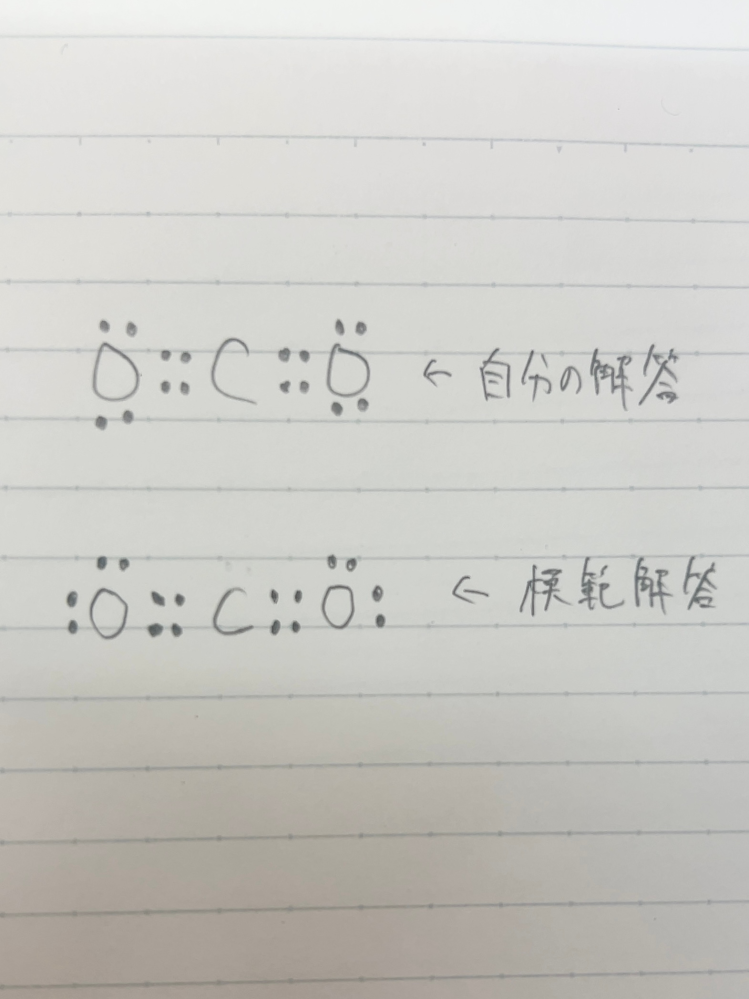 O::C::O ← 自分の解答
:O::C::O: ← 模範解答